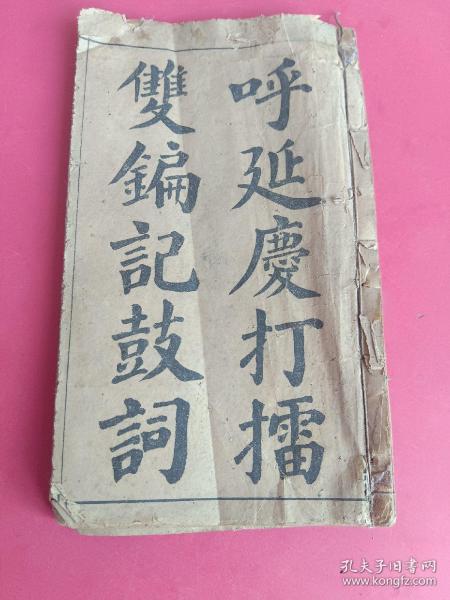 呼延慶打擂
雙鞭記鼓詞
孔夫子旧书网
www.kongfz.com